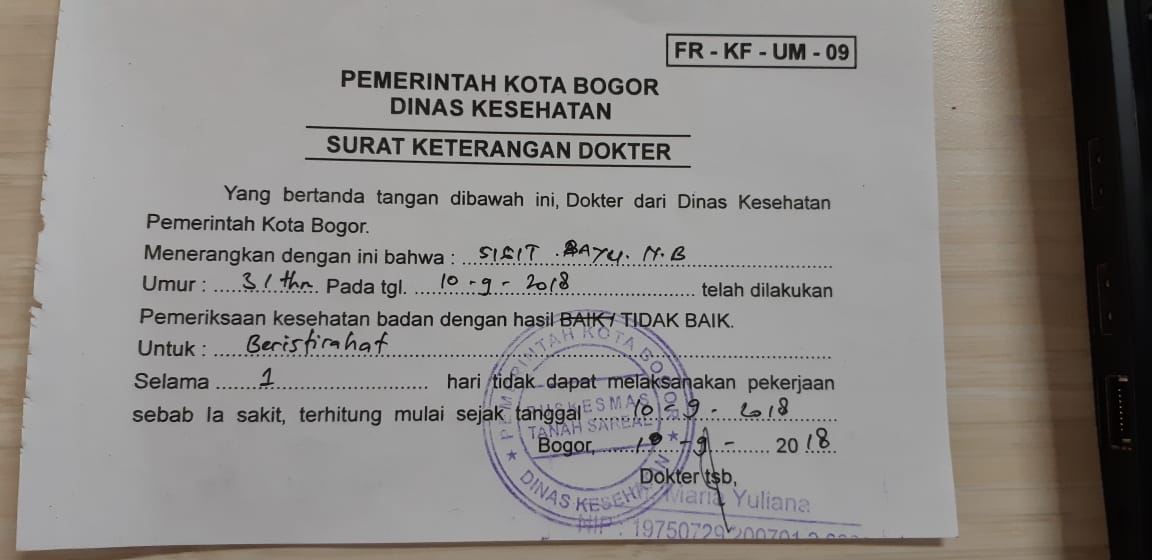 FR - KF - UM - 09
PEMERINTAH KOTA BOGOR
DINAS KESEHATAN
SURAT KETERANGAN DOKTER
Yang bertanda tangan dibawah ini, Dokter dari Dinas Kesehatan
Pemerintah Kota Bogor.
Menerangkan dengan ini bahwa : SIGIT BAYU. N.B
Umur : 31 thn Pada tgl. 10 - 9 - 2018 telah dilakukan
Pemeriksaan kesehatan badan dengan hasil BAIK / TIDAK BAIK.
Untuk : Beristirahat
Selama 1 hari tidak dapat melaksanakan pekerjaan
sebab Ia sakit, terhitung mulai sejak tanggal 10 - 9 - 2018
Bogor, 10 - 9 - 2018
Dokter tsb,
PEMERINTAH KOTA BOGOR
PUSKESMAS
TANAH SAREAL
DINAS KESEHATAN
Maria Yuliana
NIP : 19750729 200701 2